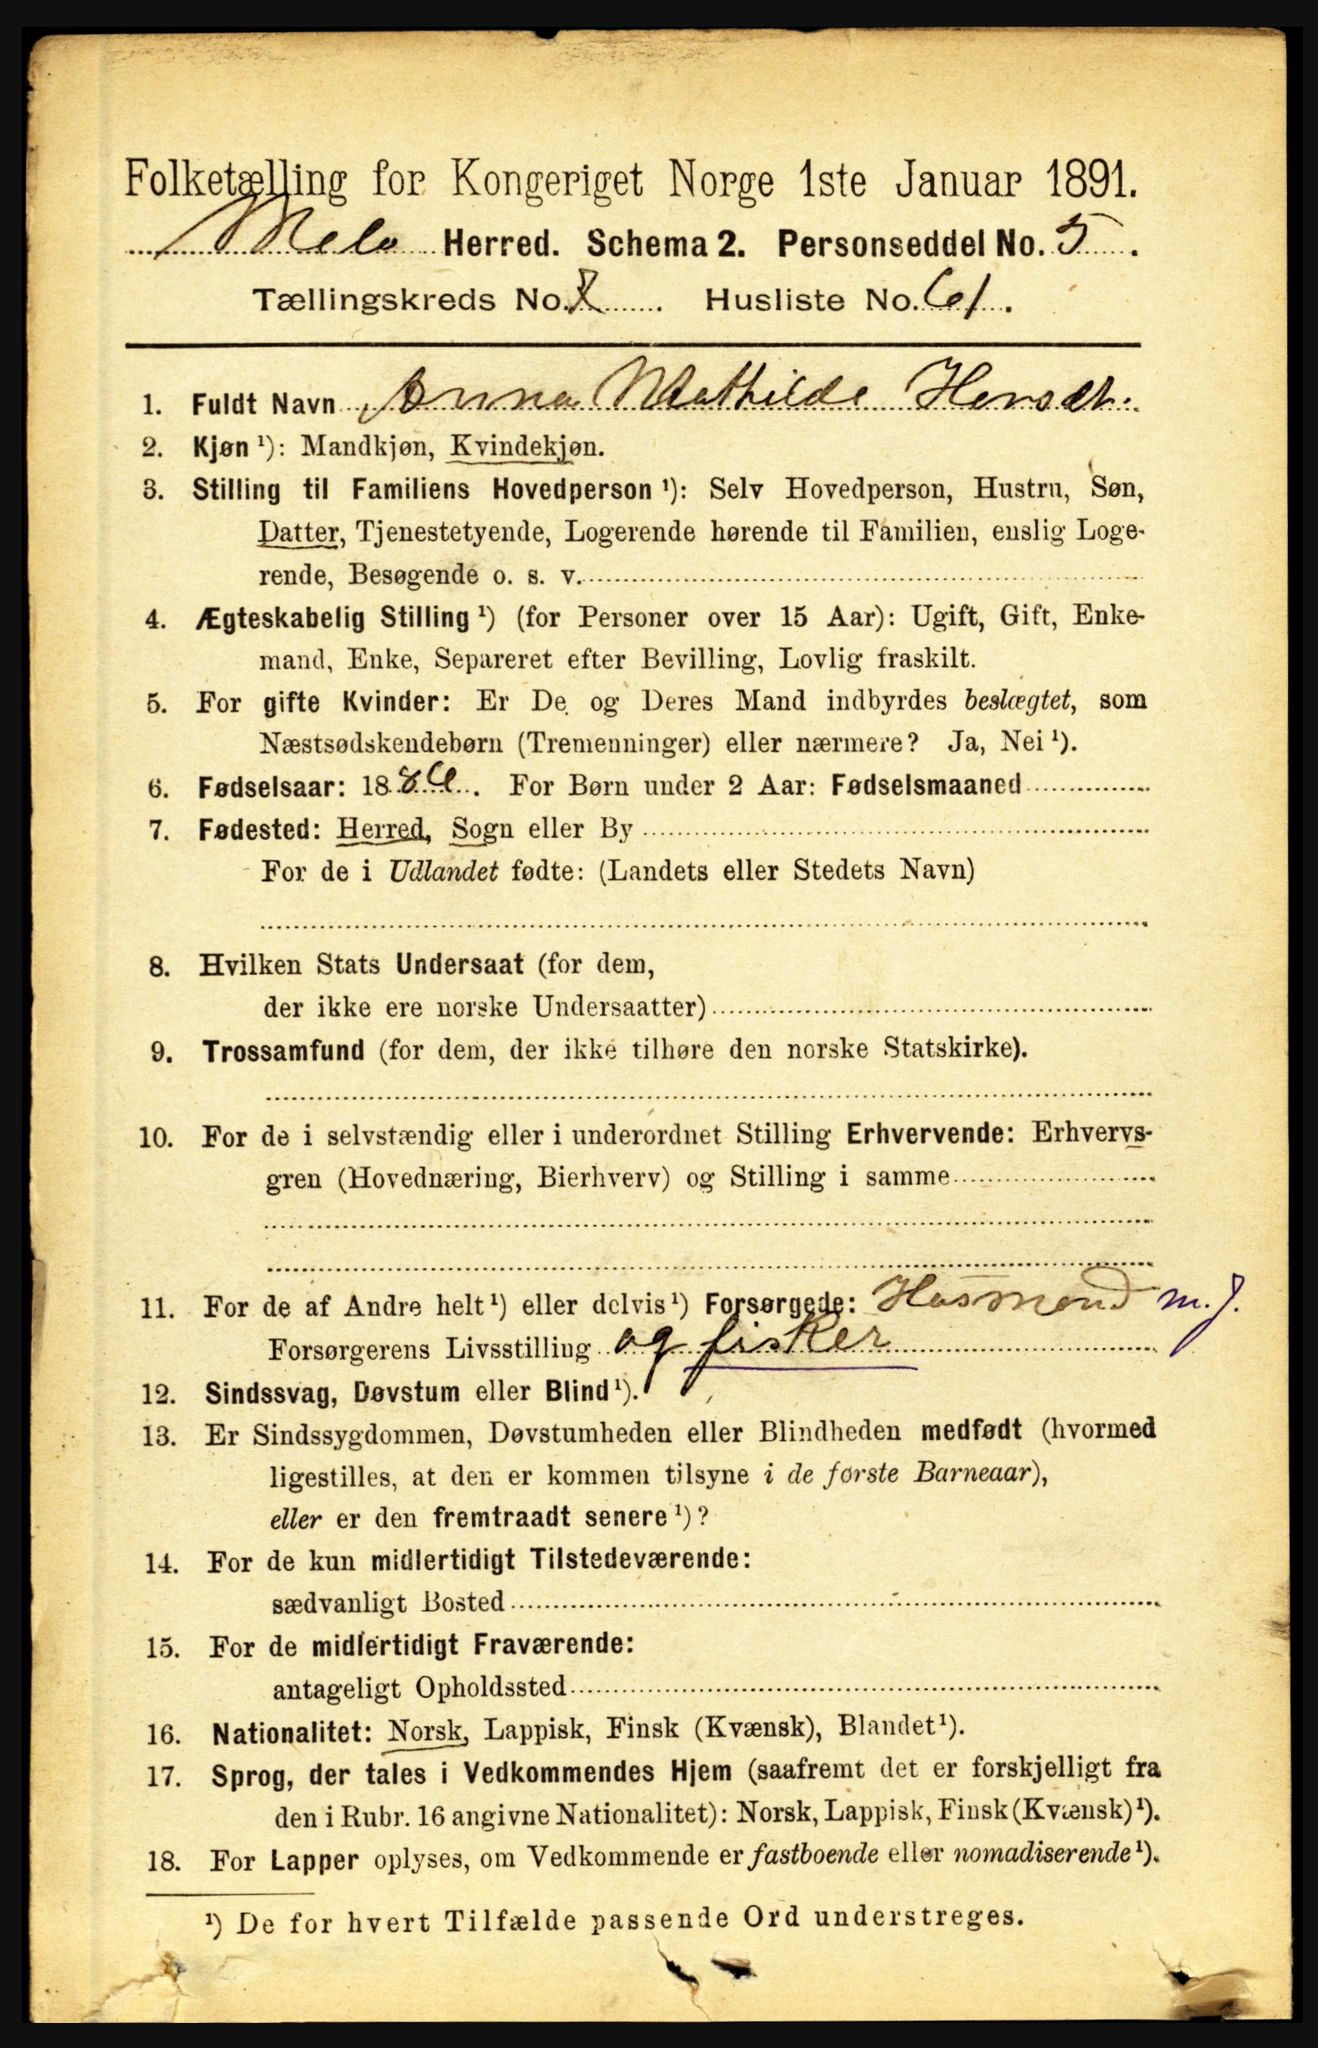 Folketælling for Kongeriget Norge 1ste Januar 1891.
Melø Herred. Schema 2. Personseddel No. 5.
Tællingskreds No. Husliste No. 61.
1. Fuldt Navn Anna Mathilde
2. Kjøn ¹): Mandkjøn, Kvindekjøn.
3. Stilling til Familiens Hovedperson ¹): Selv Hovedperson, Hustru, Søn,
Datter, Tjenestetyende, Logerende hørende til Familien, enslig Loge-
rende, Besøgende o. s. v.
4. Ægteskabelig Stilling ¹) (for Personer over 15 Aar): Ugift, Gift, Enke-
mand, Enke, Separeret efter Bevilling, Lovlig fraskilt.
5. For gifte Kvinder: Er De og Deres Mand indbyrdes beslægtet, som
Næstsødskendebørn (Tremenninger) eller nærmere? Ja, Nei ¹).
6. Fødselsaar: 18 . For Børn under 2 Aar: Fødselsmaaned
7. Fødested: Herred, Sogn eller By
For de i Udlandet fødte: (Landets eller Stedets Navn)
8. Hvilken Stats Undersaat (for dem,
der ikke ere norske Undersaatter)
9. Trossamfund (for dem, der ikke tilhøre den norske Statskirke).
10. For de i selvstændig eller i underordnet Stilling Erhvervende: Erhvervs-
gren (Hovednæring, Bierhverv) og Stilling i samme
11. For de af Andre helt ¹) eller delvis ¹) Forsørgede: Husmand m. J.
Forsørgerens Livsstilling og fisker
12. Sindssvag, Døvstum eller Blind ¹).
13. Er Sindssygdommen, Døvstumheden eller Blindheden medfødt (hvormed
ligestilles, at den er kommen tilsyne i de første Barneaar),
eller er den fremtraadt senere ¹)?
14. For de kun midlertidigt Tilstedeværende:
sædvanligt Bosted
15. For de midlertidigt Fraværende:
antageligt Opholdssted
16. Nationalitet: Norsk, Lappisk, Finsk (Kvænsk), Blandet ¹).
17. Sprog, der tales i Vedkommendes Hjem (saafremt det er forskjelligt fra
den i Rubr. 16 angivne Nationalitet): Norsk, Lappisk, Finsk (Kvænsk) ¹).
18. For Lapper oplyses, om Vedkommende er fastboende eller nomadiserende ¹).
¹) De for hvert Tilfælde passende Ord understreges.